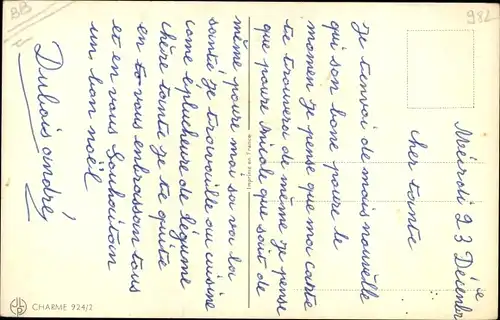 Mécredi 23 Décembre
cher tante
je t'envoi de mais nouvelle
qui son bone poure le
momen je pense que ma carte
te trouvera de même je pense
que poure Micale que sait de
même poure moi sa va la
santé je trouvaille au cuisine
come eplucheure de légume
chère tante je te quite
en to vous enbrassan tous
et en vous Souhaiton
un bon noël
Dubois andré
Imprimé en France
CHARME 924/2
BB
982